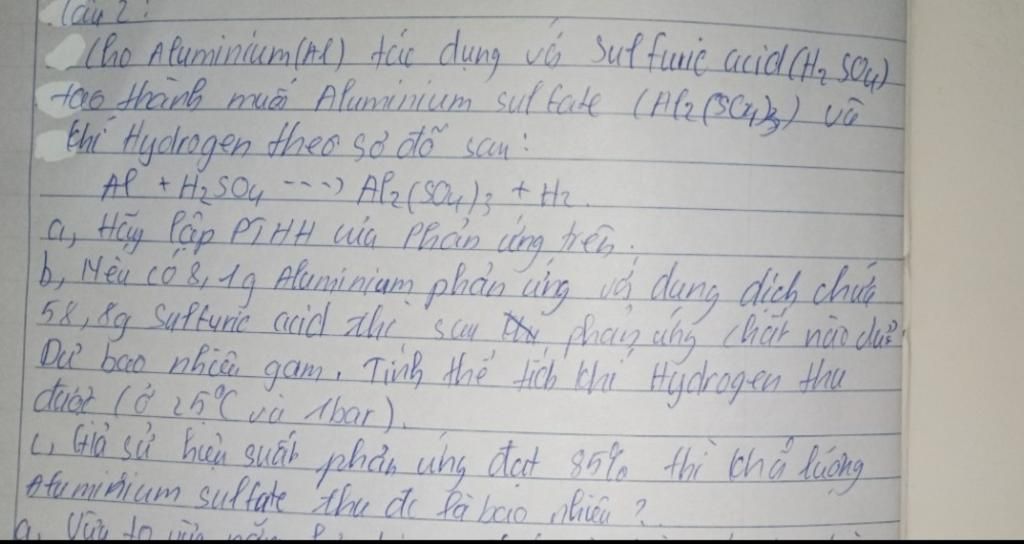 Câu 2:
Cho Aluminium (Al) tác dụng với Sulfuric acid (H2 SO4)
tạo thành muối Aluminium sulfate (Al2(SO4)3) và
khí Hydrogen theo sơ đồ sau:
Al + H2SO4 ---> Al2(SO4)3 + H2.
a, Hãy lập PTHH của Phản ứng trên.
b, Nếu có 8,1g Aluminium phản ứng với dung dịch chứa
58,8g Sulfuric acid thì sau phản ứng chất nào dư?
Dư bao nhiêu gam. Tính thể tích khí Hydrogen thu
được (ở 25°C và 1bar).
c, Giả sử hiệu suất phản ứng đạt 85% thì khối lượng
Aluminium sulfate thu đc là bao nhiêu?